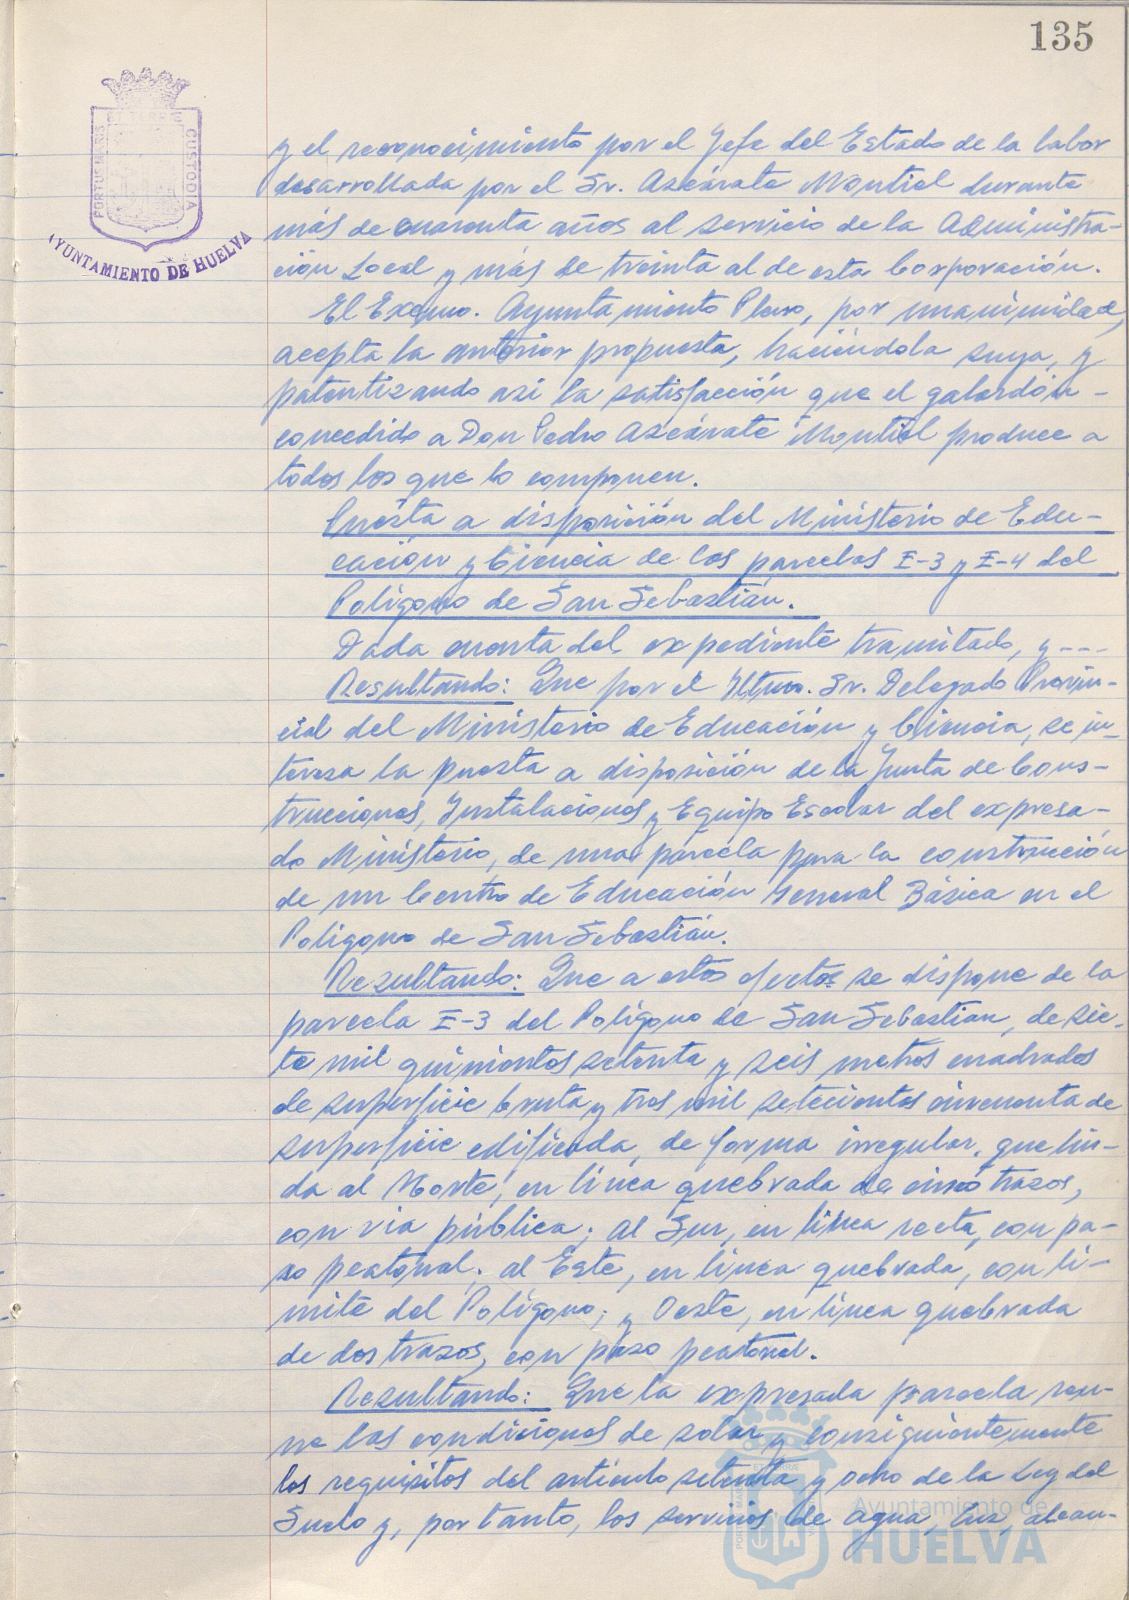 135
PORTUS MARIS ET TERRE CUSTODIA
AYUNTAMIENTO DE HUELVA
y el reconocimiento por el Jefe del Estado de la labor
desarrollada por el Sr. Azcárate Montiel durante
más de cuarenta años al servicio de la Administra-
ción Local y más de treinta al de esta Corporación.
El Excmo. Ayuntamiento Pleno, por unanimidad,
acepta la anterior propuesta, haciéndola suya, y
patentizando asi la satisfacción que el galardón -
concedido a Don Pedro Azcárate Montiel produce a
todos los que lo componen.
Puesta a disposición del Ministerio de Edu-
cación y Ciencia de las parcelas E-3 y E-4 del
Polígono de San Sebastián.
Dada cuenta del expediente tramitado, y ---
Resultando: Que por el Iltmo. Sr. Delegado Provin-
cial del Ministerio de Educación y Ciencia, se in-
teresa la puesta a disposición de la Junta de Cons-
trucciones, Instalaciones y Equipo Escolar del expresa-
do Ministerio, de una parcela para la construcción
de un Centro de Educación General Básica en el
Polígono de San Sebastián.
Resultando: Que a estos efectos se dispone de la
parcela E-3 del Polígono de San Sebastian, de sie-
te mil quinientos setenta y seis metros cuadrados
de superficie bruta y tres mil setecientos cincuenta de
superficie edificada, de forma irregular, que lin-
da al Norte, en línea quebrada de cinco trazos,
con via pública; al Sur, en línea recta, con pa-
so peatonal; al Este, en línea quebrada, con lí-
mite del Polígono; y Oeste, en línea quebrada
de dos trazos, con paso peatonal.
Resultando: Que la expresada parcela reu-
ne las condiciones de solar y consiguientemente
los requisitos del artículo setenta y ocho de la Ley del
Suelo y, por tanto, los servicios de agua, luz, alcan-
Ayuntamiento de
HUELVA